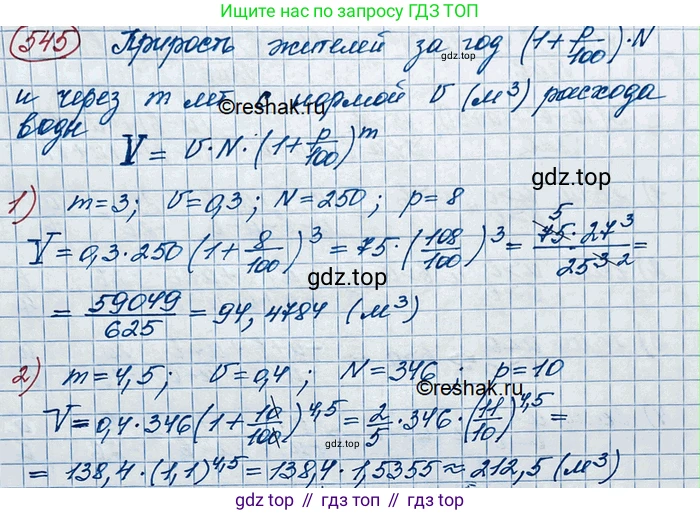 не запускается просто по запросу ГДЗ ТОП
545 Прирость жителей за год (1+p/100)·N
и через m лет с нормой v (м³) расхода
воды V = v·N·(1+p/100)^m
©reshak.ru
gdz.top
1) m=3; v=0,3; N=250; p=8
V=0,3·250(1+8/100)^3=75·(108/100)^3= 5 75·27^3/25^3-2 =
gdz.top
= 59049/625 = 94,4784 (м³)
2) m=4,5; v=0,4; N=346; p=10
©reshak.ru
V=0,4·346(1+10/100)^4,5=2/5·346·(11/10)^4,5=
gdz.top
= 138,4·(1,1)^4,5=138,4·1,5355≈212,5 (м³)
gdz.top // гдз.топ // gdz.top // гдз.топ